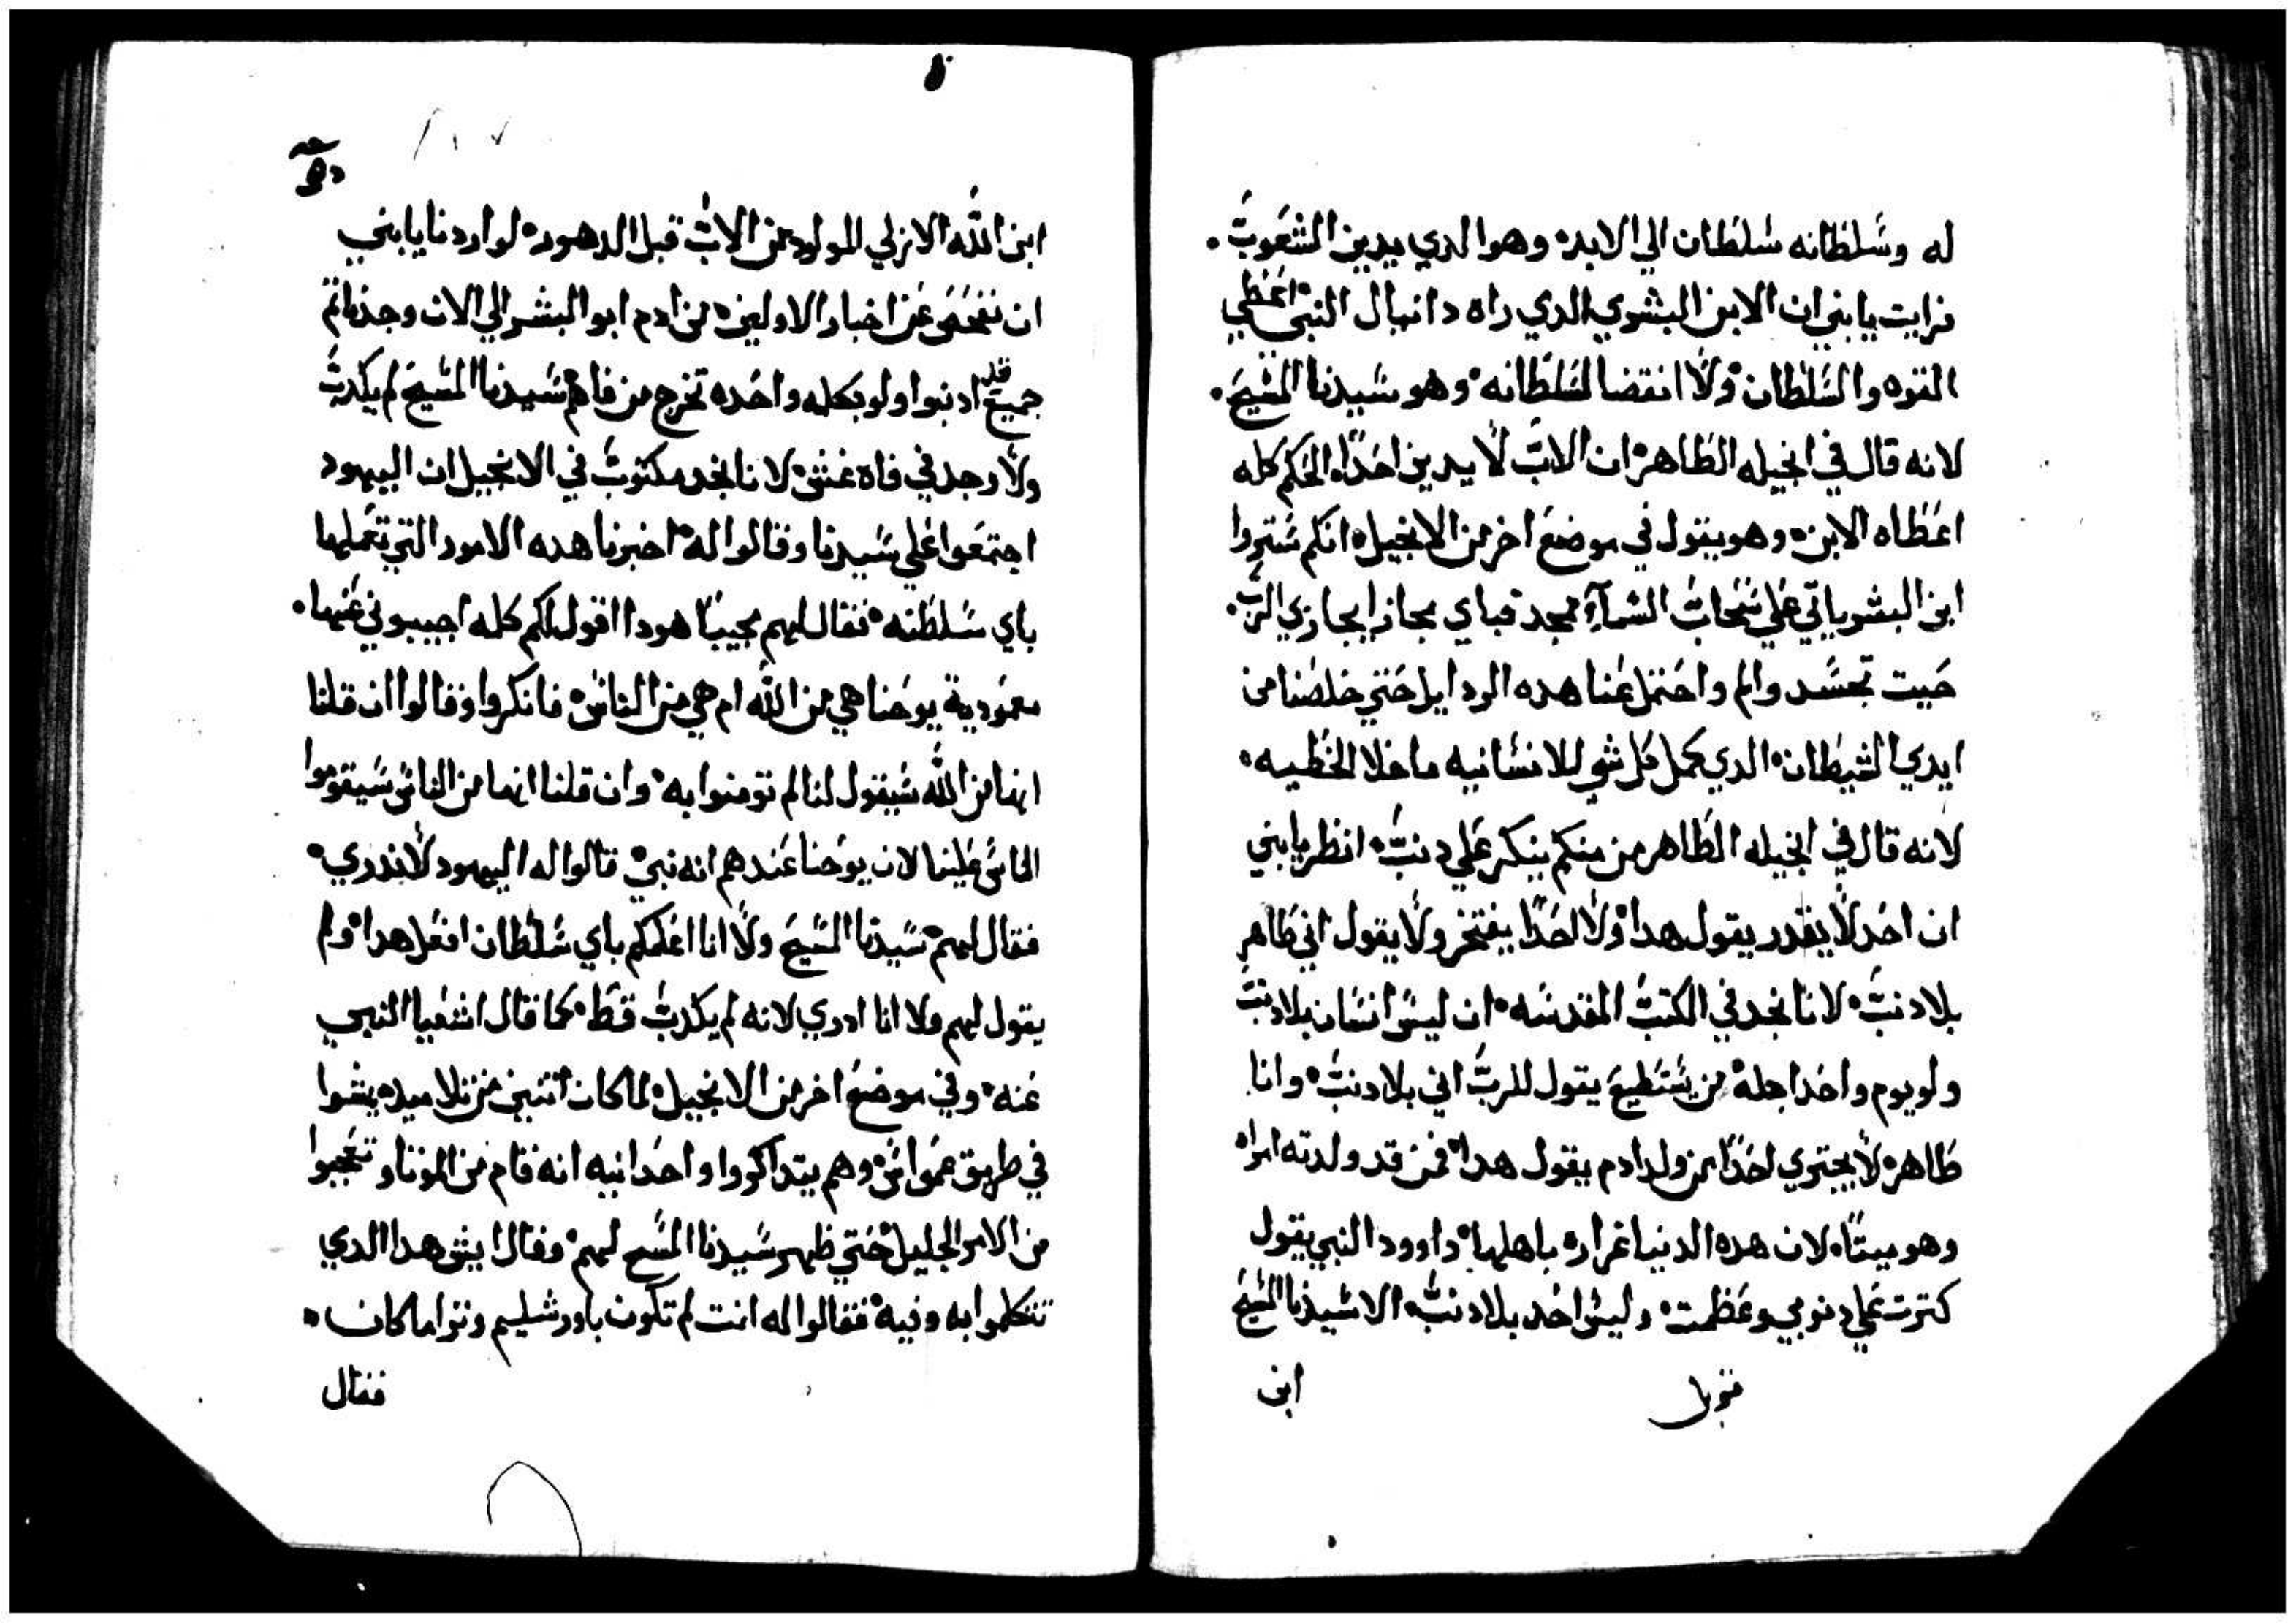 له وسلطانه سلطان الي الابد وهو الدي يدين الشعوب
فرايت يا بني ان الابن البشري الدي راه دانيال النبي اعطي
القوه والسلطان ولا انقضا لسلطانه وهو سيدنا المسيح
لانه قال في انجيله الطاهر ان الاب لا يدين احدًا الحكم كله
اعطاه الابن وهو يقول في موضع اخر من الانجيل انكم ستروا
ابن البشر ياتي علي سحاب السمآء بمجد فباي مجاز ايجازي الرب
حيت تجسد والم واحتمل عنا هده الردايل حتي خلصنا من
ايدي الشيطان الدي كمل كل شي للانسانيه ما خلا الخطيه
لانه قال في انجيله الطاهر من منكم ينكر علي دنب انظر يا بني
ان احد لا يقدر يقول هدا ولا احدًا يفتخر ولا يقول اني طاهر
بلا دنب لانا نجد في الكتب المقدسه ان ليس انسان بلا دنب
ولو يوم واحد اجله من يستطيع يقول للرب اني بلا دنب وانا
طاهر لا يجتري احدًا من ولد ادم يقول هدا فمن قد ولدته امراه
وهو ميتًا لان هده الدنيا غراره باهلها داوود النبي يقول
كترت علي دنوبي وعظمت وليس احد بلا دنب الا سيدنا المسيح
ابن
ابن الله الازلي المولود من الاب قبل الدهور لو اردنا يا بني
ان نفحص عن اخبار الاولين من ادم ابو البشر الي الان وجدناهم
جميع قد ادنبوا ولو بكلمه واحده تخرج من فاهم سيدنا المسيح لم يكدب
ولا وجد في فاه غش لانا نجد مكتوب في الانجيل ان اليهود
اجتمعوا علي سيدنا وقالوا له اخبرنا هده الامور التي تعملها
باي سلطنه فقال لهم مجيبًا هودا اقول لكم كلمه اجيبوني عنها
معمودية يوحنا هي من الله ام هي من الناس فانكروا وقالوا ان قلنا
انها من الله سيقول لنا لم تومنوا به وان قلنا انها من الناس سيقوموا
الناس علينا لان يوحنا عندهم انه نبي قالوا له اليهود لا ندري
فقال لهم سيدنا المسيح ولا انا اعلمكم باي سلطان افعل هدا ولم
يقول لهم ولا انا ادري لانه لم يكدب قط كما قال اشعيا النبي
عنه وفي موضع اخر من الانجيل لما كان اتنين من تلاميده يمشوا
في طريق عمواس وهم يتداكروا واحدا نيه انه قام من الموتا وتعجبوا
من الامر الجليل حتي ظهر سيدنا المسيح لهم وقال ايش هدا الدي
تتكلموا به وفيه فقالوا له انت لم تكون باورشليم وترا ما كان
فقال